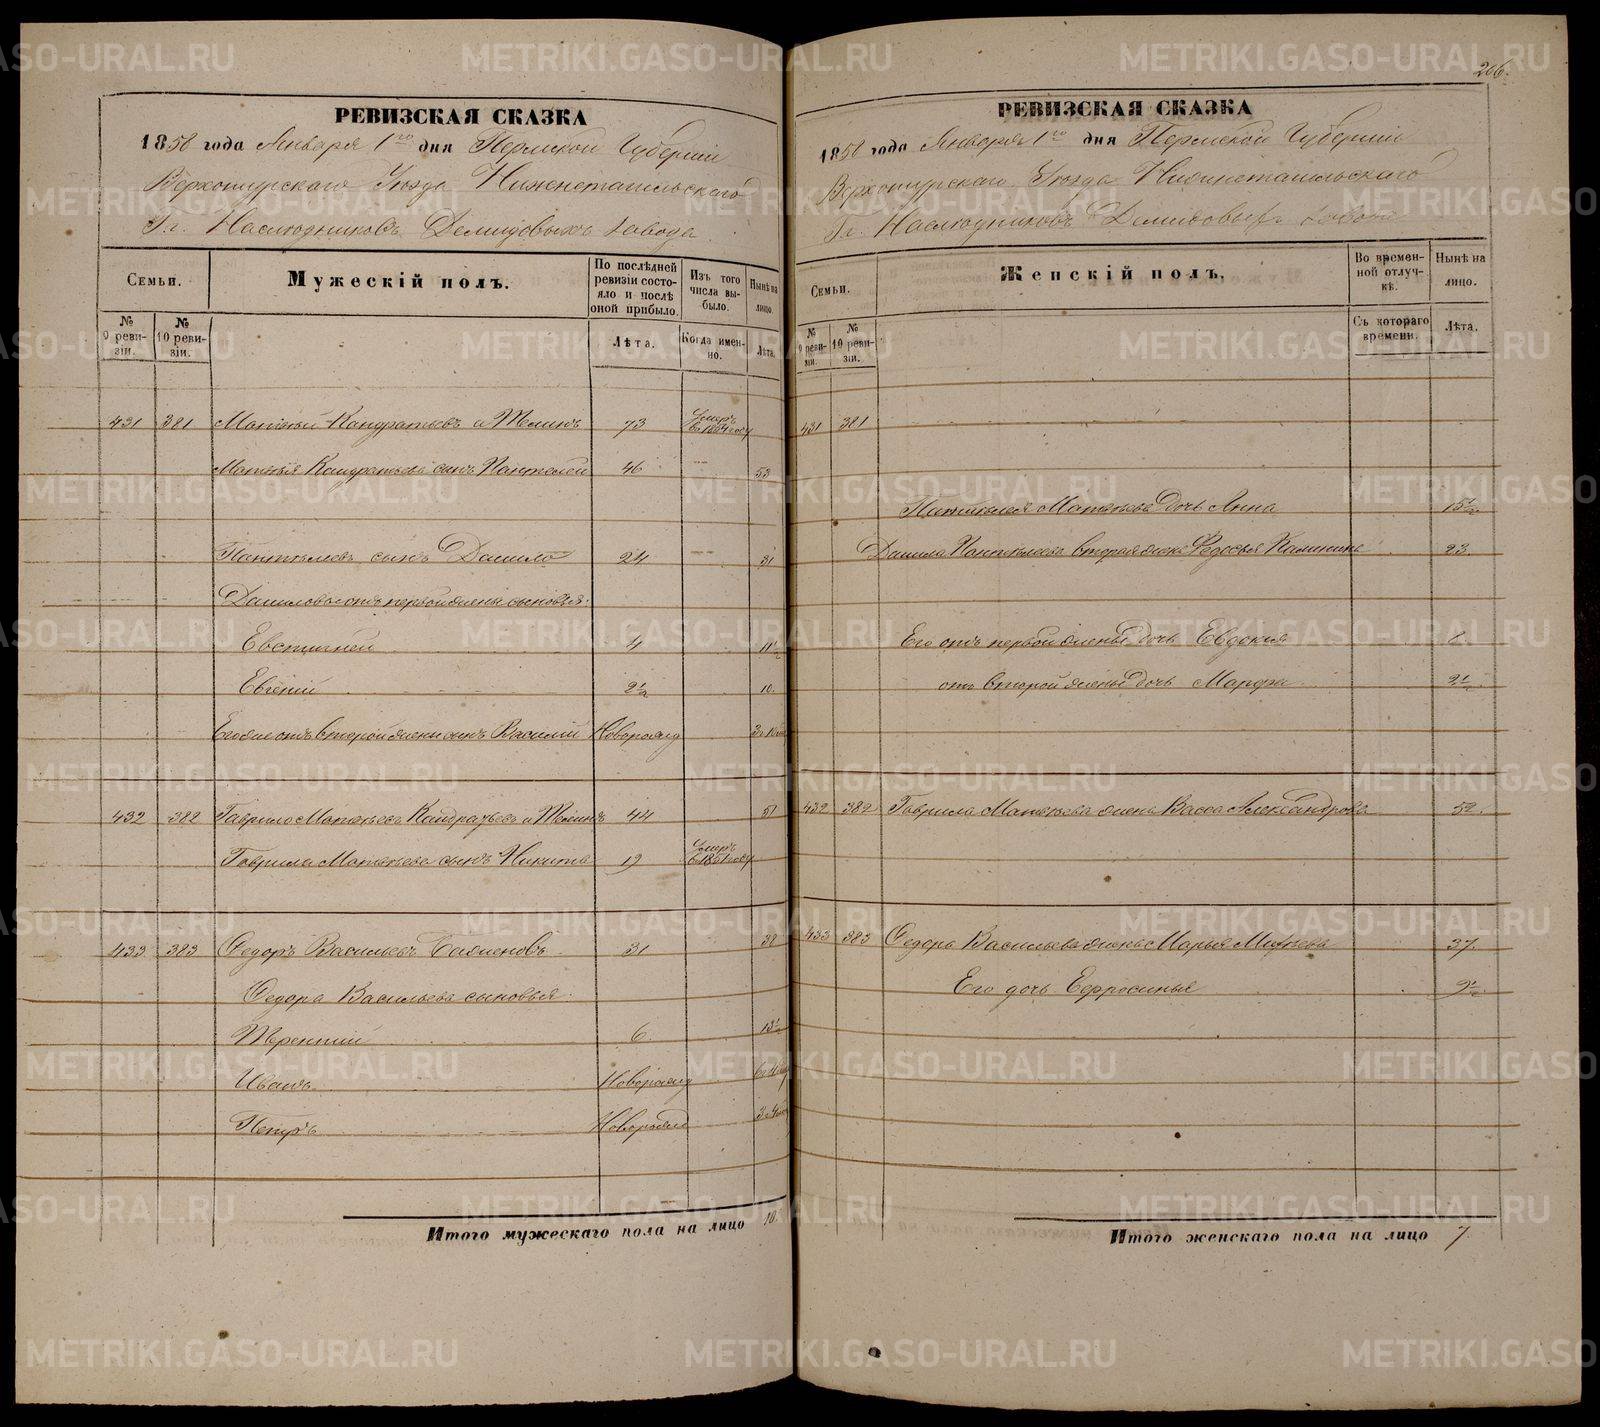 206.
РЕВИЗСКАЯ СКАЗКА
1858 года Января 1го дня Пермской Губернiи
Верхотурскаго Уезда Нижнетагильскаго
Гг. Наследниковъ Демидовыхъ завода
Семьи.
Мужескiй полъ.
По послѣдней ревизiи состояло и послѣ оной прибыло.
Изъ того числа выбыло.
Нынѣ на лицо.
№ 9 ревизiи.
№ 10 ревизiи.
Лѣта.
Когда именно.
Лѣта.
431 381 Матвей Кандратьевъ 73 Умеръ в 1854 году
Матвея Кандратьева сынъ Пантелей 46 53
Пантелеевъ сынъ Данило 24 31
Даниловы отъ первой жены сыновья:
Евстигней 4 11 1/2
Евгенiй 2 1/2 10.
Его же отъ второй жены сынъ Василiй Новорожд
432 382 Гаврило Матвеевъ Кандратьевъ 44 51
Гаврила Матвеева сынъ Никита 19 Умеръ в 1851 году
433 383 Федоръ Васильевъ 31 38
Федора Васильева сыновья:
Терентiй 6. 13 1/2
Иванъ Новорожд
Петръ Новорожд
Итого мужескаго пола на лицо 10.
РЕВИЗСКАЯ СКАЗКА
1858 года Января 1го дня Пермской Губернiи
Верхотурскаго Уезда Нижнетагильскаго
Гг. Наследниковъ Демидовыхъ завода
Семьи.
Женскiй полъ.
Во временной отлучкѣ.
Нынѣ на лицо.
№ 9 ревизiи.
№ 10 ревизiи.
Съ котораго времени.
Лѣта.
431 381
Пантелея Матвеева дочь Анна 15 1/2
Данила Пантелеева вторая жена Федосья Калинина 23.
Его отъ первой жены дочь Евдокiя 8.
отъ второй жены дочь Марфа 2 1/2
432 382 Гаврила Матвеева жена Васса Александрова 52.
433 383 Федора Васильева жена Марья 37.
Его дочь Ефросинья 9 1/2
Итого женскаго пола на лицо 7
METRIKI.GASO-URAL.RU